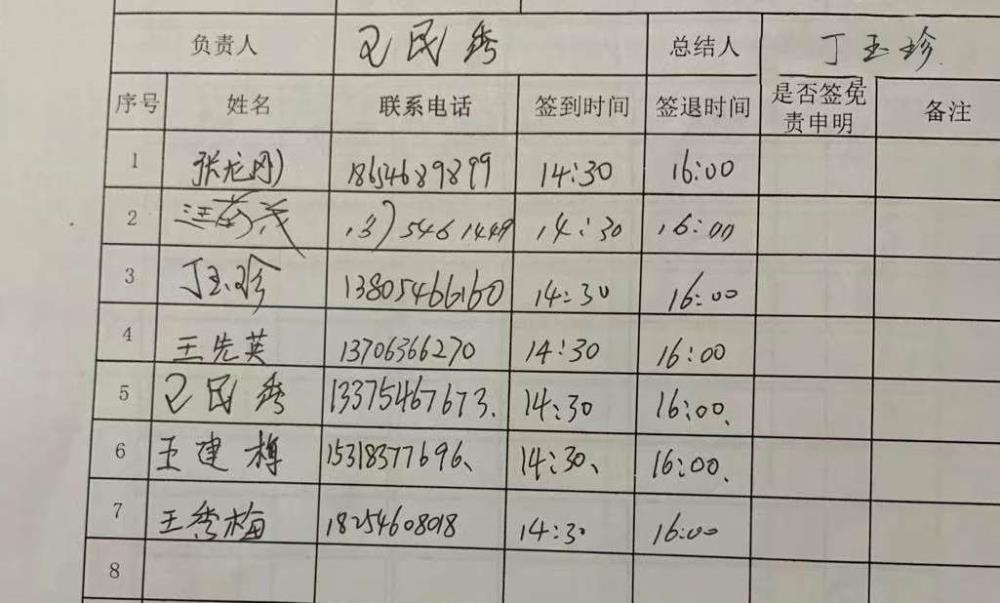 负责人 卫民秀 总结人 丁玉珍
序号 姓名 联系电话 签到时间 签退时间 是否签免责申明 备注
1 张龙刚 18654689899 14:30 16:00
2 14:30 16:00
3 丁玉珍 13805466160 14:30 16:00
4 王先英 13706366270 14:30 16:00
5 民秀 13375467673. 14:30 16:00.
6 王建梅 15318377696、 14:30、 16:00.
7 王秀梅 18254608018 14:30 16:00
8